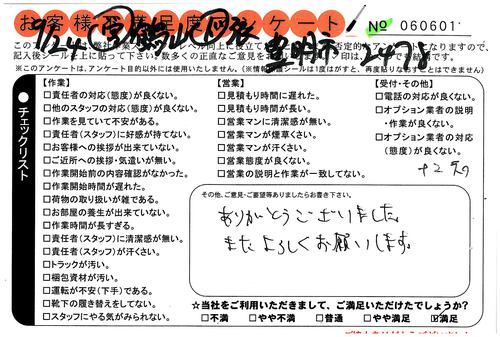 お客様
アンケート
№ 060601
9/24
豊明市
2478
※このアンケートは、アンケート目的以外には使用いたしません。
チェックリスト
【作業】
□責任者の対応(態度)が良くない。
□他のスタッフの対応(態度)が良くない。
□作業を見ていて不安がある。
□責任者(スタッフ)に好感が持てない。
□お客様への挨拶が出来ていない。
□ご近所への挨拶・気遣いが無い。
□作業開始前の内容確認がなかった。
□作業開始時間が遅れた。
□荷物の取り扱いが雑である。
□お部屋の養生が出来ていない。
□作業時間が長すぎる。
□責任者(スタッフ)に清潔感が無い。
□責任者(スタッフ)が汗くさい。
□トラックが汚い。
□梱包資材が汚い。
□運転が不安(下手)である。
□靴下の履き替えをしてない。
□スタッフにやる気がみられない。
【営業】
□見積もり時間に遅れた。
□見積もり時間が長い。
□営業マンに清潔感が無い。
□営業マンが煙草くさい。
□営業マンが汗くさい。
□営業態度が良くない。
□営業の説明と作業が一致してない。
【受付・その他】
□電話の対応が良くない。
□オプション業者の説明
・作業が良くない。
□オプション業者の対応
(態度)が良くない。
その他、ご意見・ご要望等ありましたらお書き下さい。
ありがとうございました。
またよろしくお願いします。
☆当社をご利用いただきまして、ご満足いただけたでしょうか?
□不満 □やや不満 □普通 □やや満足 ☑満足